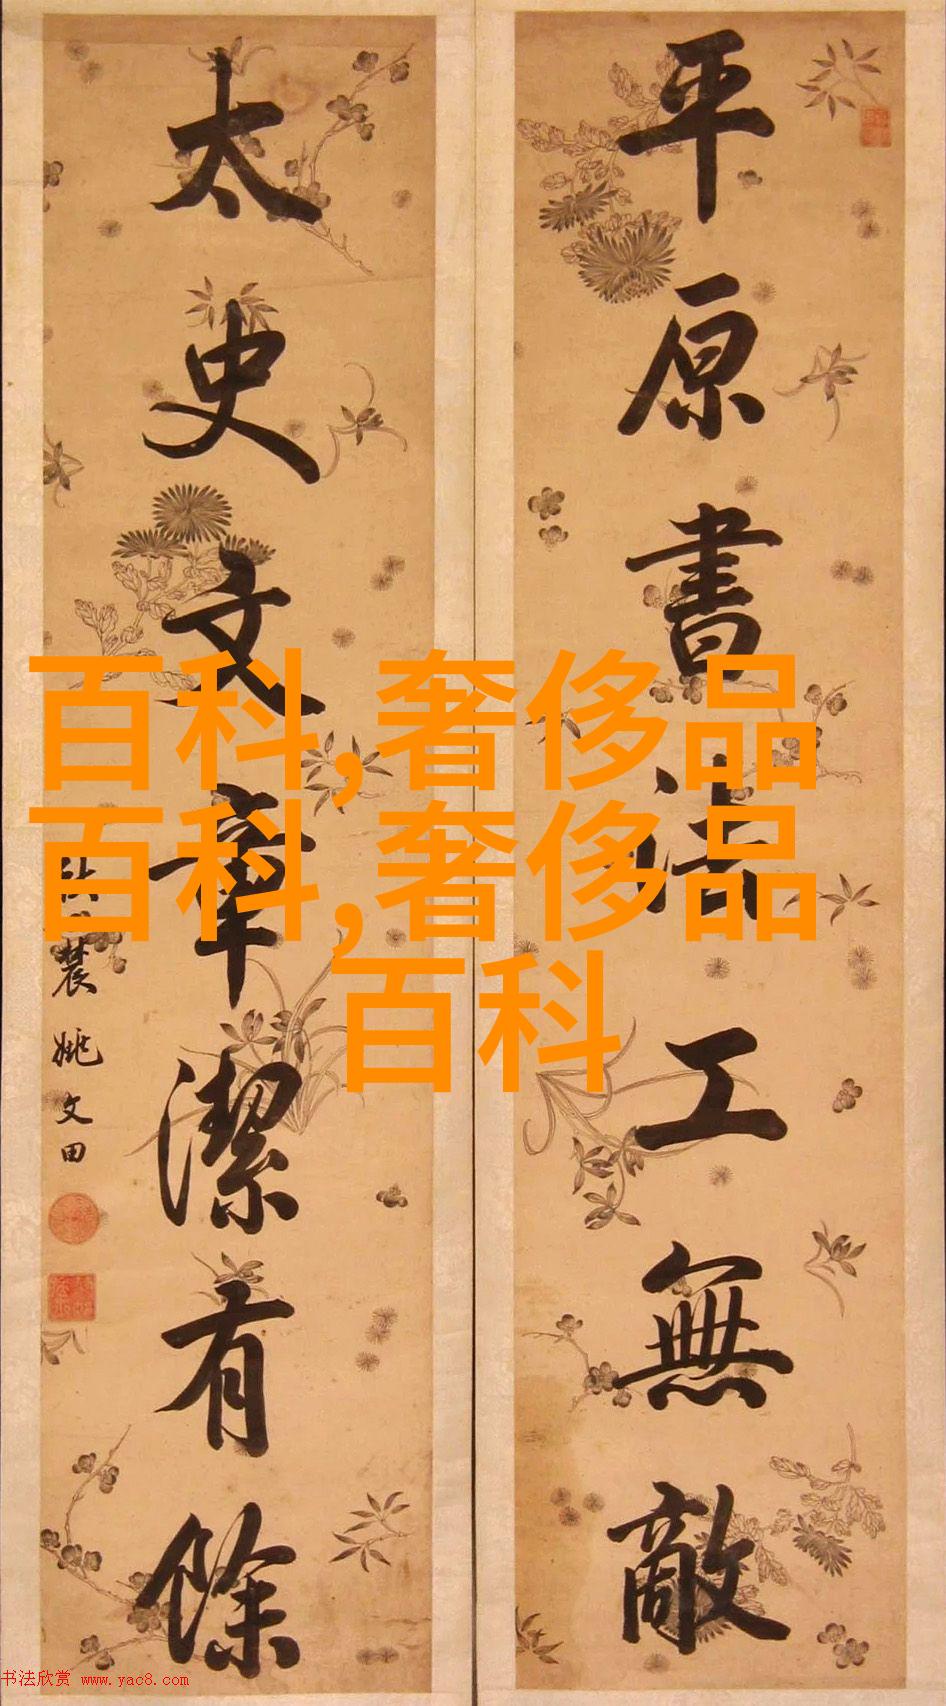 平原書法工無敵
太史文章潔有餘
姚文田
百科,奢侈品
百科,奢侈品
百科
书法欣赏 www.yac8.com